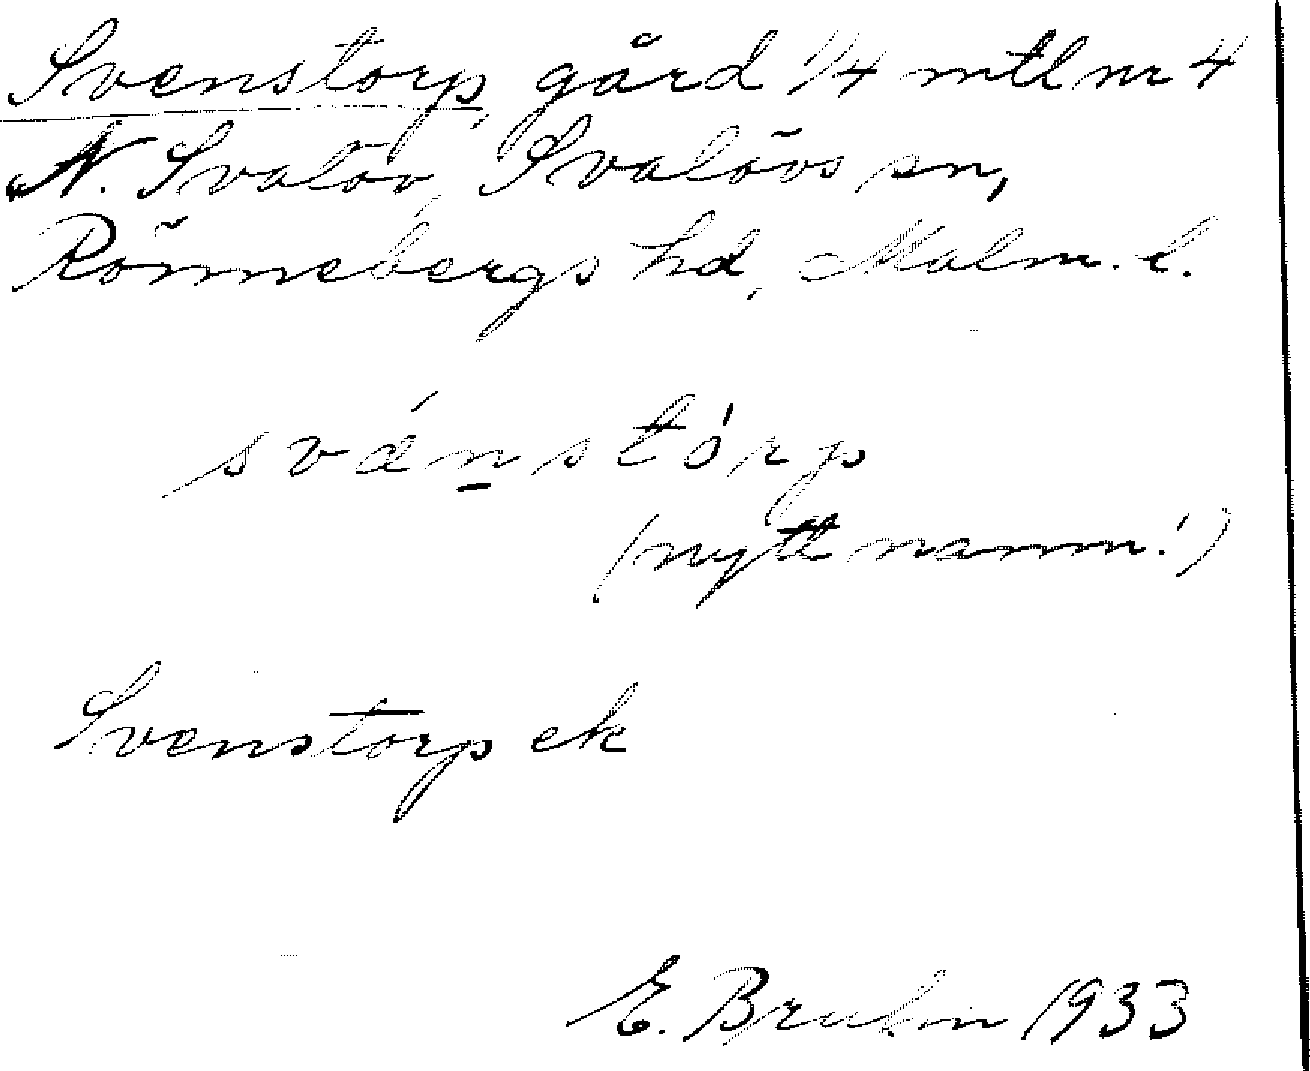 Svenstorp, gård 1/4 mtl nr 4
N. Svalöv, Svalövs sn,
Rönnebergs hd, Malm. l.
svä́nstórp
(nytt namn!)
Svenstorp ek
E. Bruhn 1933